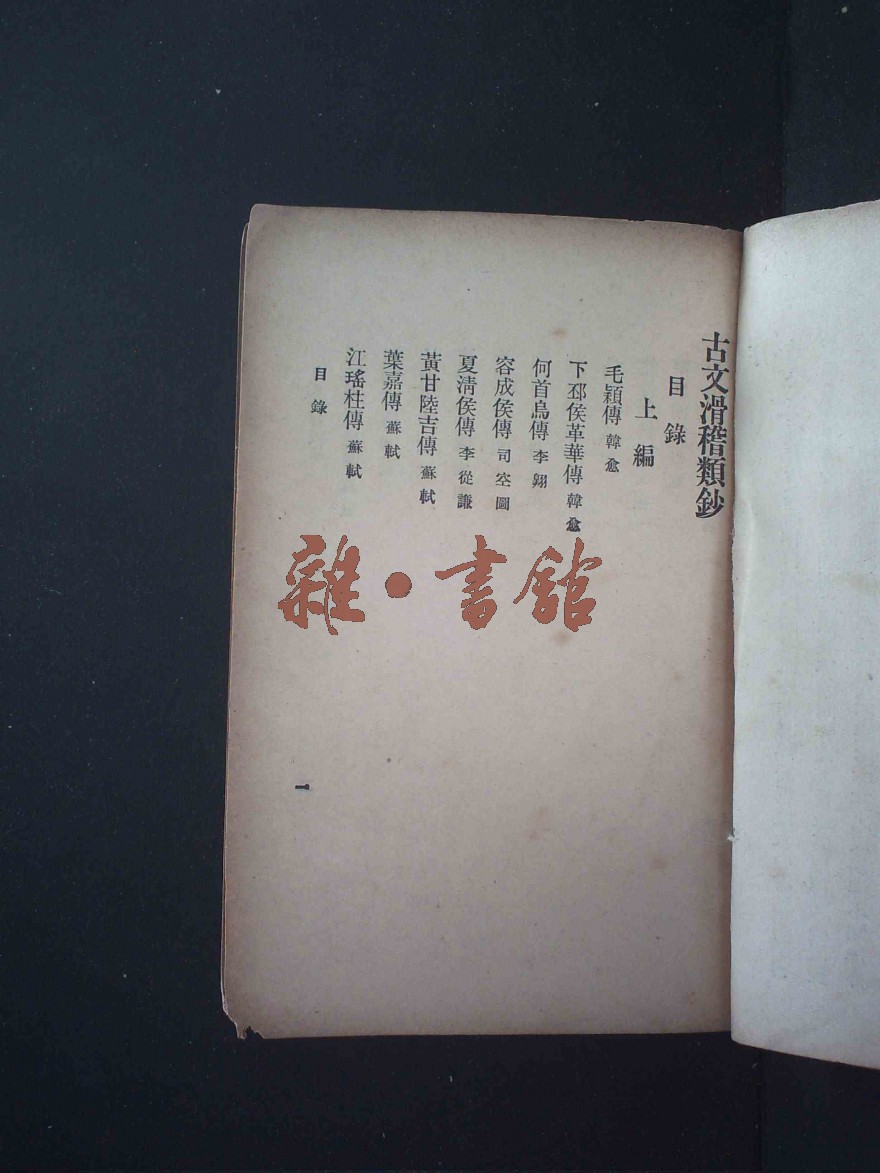 古文滑稽類鈔
目錄
上編
毛穎傳 韓愈
下邳侯革華傳 韓愈
何首烏傳 李翺
容成侯傳 司空圖
夏淸侯傳 李從謙
黃甘陸吉傳 蘇軾
葉嘉傳 蘇軾
江瑤柱傳 蘇軾
目錄
一
雜·書館